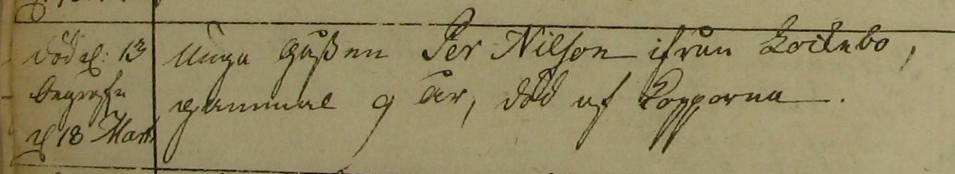 död d: 13
begrofs
d 18 Marti
Unga Gußen Per Nilson ifrån Kockebo,
gammal 9 år, död af Kopporna.